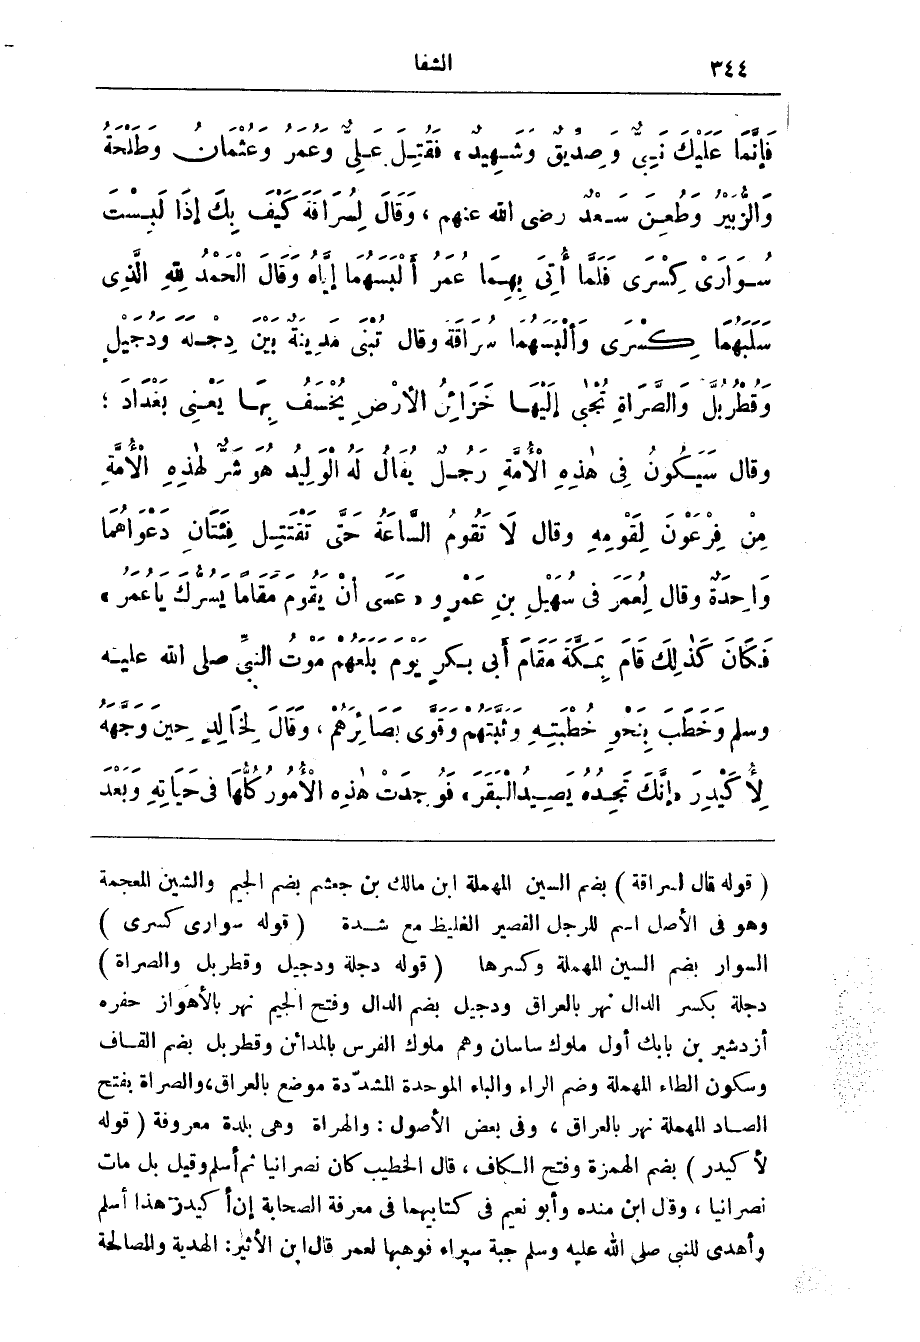 ٣٤٤
الشفا
فَإِنَّمَا عَلَيْكَ نَبِيٌّ وَصِدِّيقٌ وَشَهِيدٌ، فَقُتِلَ عَلِيٌّ وَعُمَرُ وَعُثْمَانُ وَطَلْحَةُ
وَالزُّبَيْرُ وَطُعِنَ سَعْدٌ رضى الله عنهم، وَقَالَ لِسُرَاقَةَ كَيْفَ بِكَ إِذَا لَبِسْتَ
سُوَارَىْ كِسْرَى فَلَمَّا أُتِىَ بِهِمَا عُمَرُ أَلْبَسَهُمَا إِيَّاهُ وَقَالَ الْحَمْدُ لِلهِ الَّذِى
سَلَبَهُمَا كِسْرَى وَأَلْبَسَهُمَا سُرَاقَةَ وقال تُبْنَى مَدِينَةٌ بَيْنَ دِجْلَةَ وَدُجَيْلٍ
وَقُطْرُبُلَّ وَالصَّرَاةِ تُجْبَى إِلَيْهَا خَزَائِنُ الأَرْضِ يُخْسَفُ بِهَا يَعْنِى بَغْدَادَ؛
وقال سَيَكُونُ فِى هٰذِهِ الْأُمَّةِ رَجُلٌ يُقَالُ لَهُ الْوَلِيدُ هُوَ شَرٌّ لِهٰذِهِ الْأُمَّةِ
مِنْ فِرْعَوْنَ لِقَوْمِهِ وقال لَا تَقُومُ السَّاعَةُ حَتَّى تَقْتَتِلَ فِئَتَانِ دَعْوَاهُمَا
وَاحِدَةٌ وقال لِعُمَرَ فى سُهَيْلِ بنِ عَمْرٍو « عَسَى أَنْ يَقُومَ مَقَامًا يَسُرُّكَ يَاعُمَرُ »
فَكَانَ كَذٰلِكَ قَامَ بِمَكَّةَ مَقَامَ أَبِى بكرٍ يَوْمَ بَلَغَهُمْ مَوْتُ النبيِّ صلى الله عليه
وسلم وَخَطَبَ بِنَحْوِ خُطْبَتِهِ وَثَبَّتَهُمْ وَقَوَّى بَصَائِرَهُمْ، وَقَالَ لِخَالِدٍ حِينَ وَجَّهَهُ
لِأُكَيْدِرَ «إِنَّكَ تَجِدُهُ يَصِيدُ الْبَقَرَ» فَوُجِدَتْ هٰذِهِ الْأُمُورُ كُلُّهَا فى حَيَاتِهِ وَبَعْدَ
( قوله قال لسراقة ) بضم السين المهملة ابن مالك بن جعشم بضم الجيم والشين المعجمة
وهو فى الأصل اسم للرجل القصير الغليظ مع شدة ( قوله سوارى كسرى )
السوار بضم السين المهملة وكسرها ( قوله دجلة ودجيل وقطربل والصراة )
دجلة بكسر الدال نهر بالعراق ودجيل بضم الدال وفتح الجيم نهر بالأهواز حفره
أزدشير بن بابك أول ملوك ساسان وهم ملوك الفرس بالمدائن وقطربل بضم القاف
وسكون الطاء المهملة وضم الراء والباء الموحدة المشدّدة موضع بالعراق، والصراة بفتح
الصاد المهملة نهر بالعراق، وفى بعض الأصول: والهراة وهى بلدة معروفة ( قوله
لأكيدر ) بضم الهمزة وفتح الكاف، قال الخطيب كان نصرانيا ثم أسلم وقيل بل مات
نصرانيا، وقال ابن منده وأبو نعيم فى كتابيهما فى معرفة الصحابة إن أكيدر هذا أسلم
وأهدى للنبى صلى الله عليه وسلم جبة سيراء فوهبها لعمر قال ابن الأثير: الهدية والمصالحة